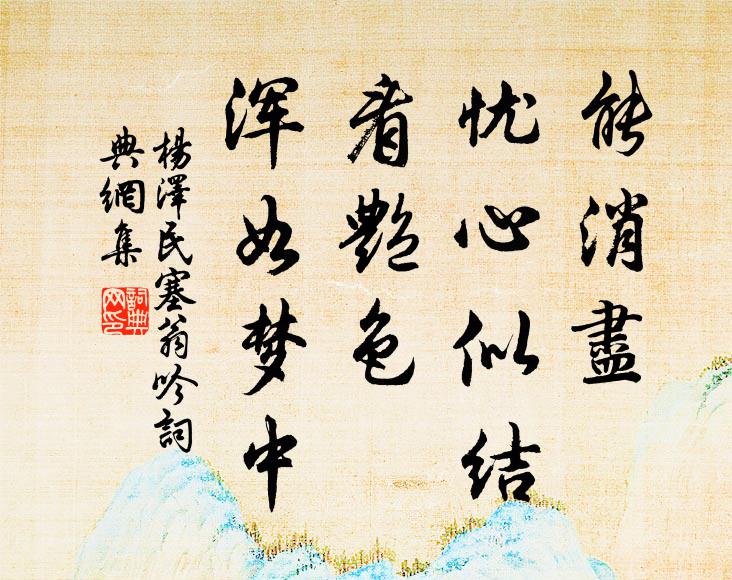 能消盡
忧心似结
看艷色
浑如梦中
楊澤民塞翁吟詞
典網集
詞典網印